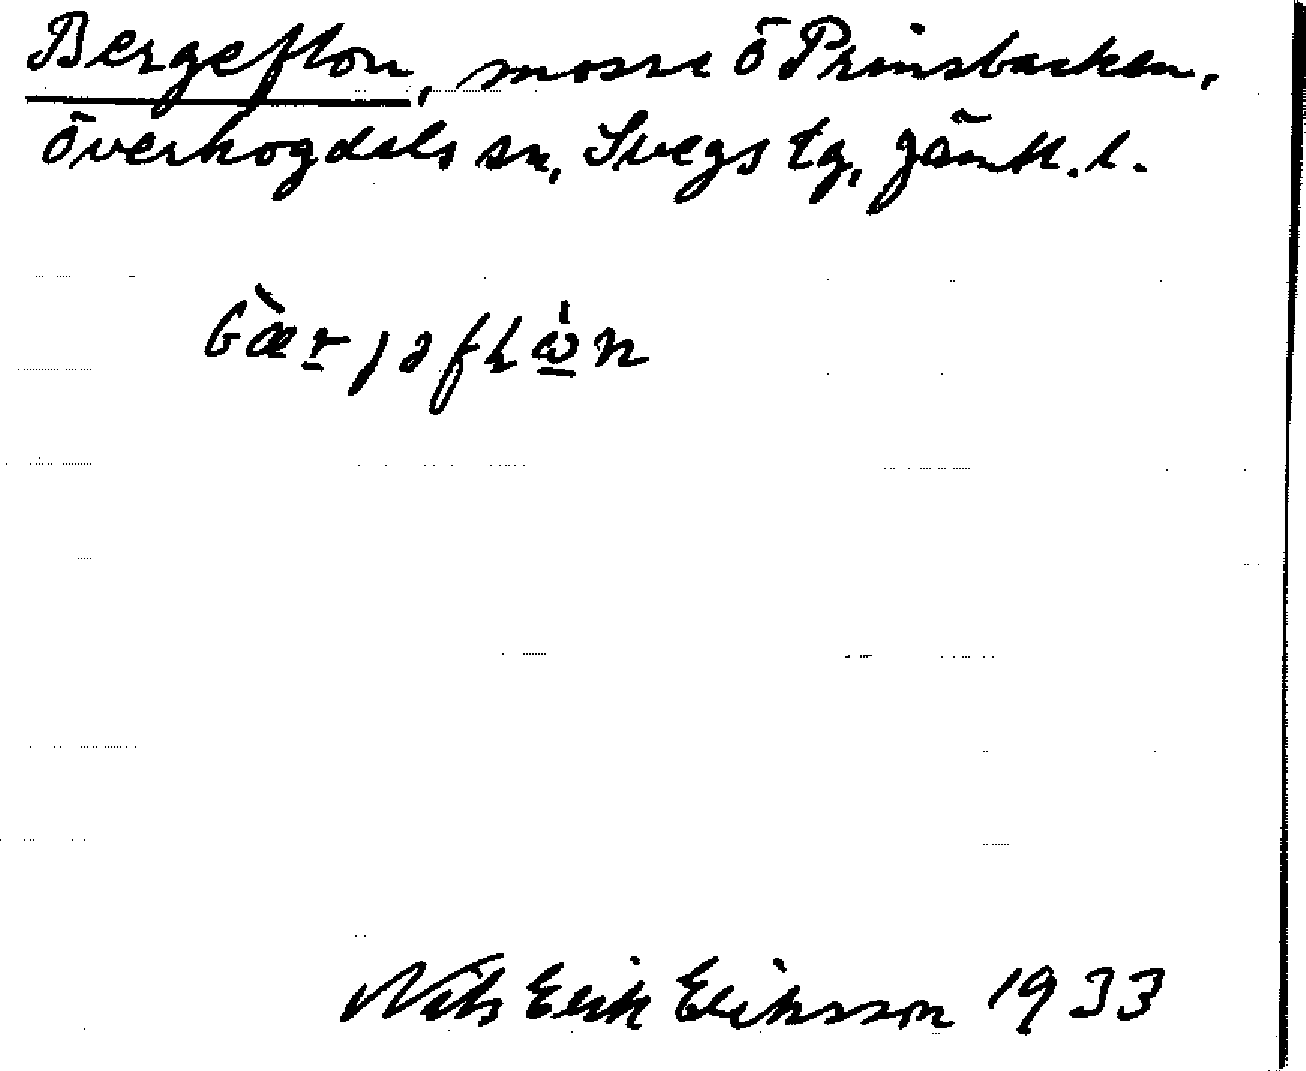 Bergeflon, mosse ö Prinsbacken,
Överhogdals sn, Svegs tg, Jämtl. l.
Nils Erik Eriksson 1933